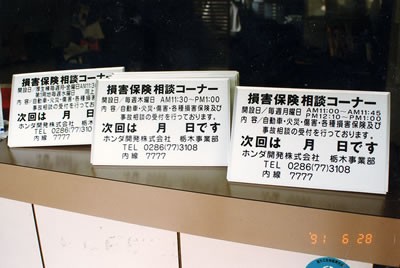 損害保険相談コーナー
開設日／
内容／自動車・火災・傷害・各種損害
事故相談の受付を行って
次回は　月　日です
ホンダ開発株式会社　栃木
TEL 0286(77)3108
内線 7777
損害保険相談コーナー
開設日／毎週木曜日 AM11:30〜PM1:00
内容／自動車・火災・傷害・各種損害保険及び
事故相談の受付を行っております。
次回は　月　日です
ホンダ開発株式会社　栃木事業部
TEL 0286(77)3108
内線 7777
損害保険相談コーナー
開設日／毎週月曜日 AM11:00〜AM11:45
PM12:10〜PM1:00
内容／自動車・火災・傷害・各種損害保険及び
事故相談の受付を行っております。
次回は　月　日です
ホンダ開発株式会社　栃木事業部
TEL 0286(77)3108
内線 7777
'91 6 28